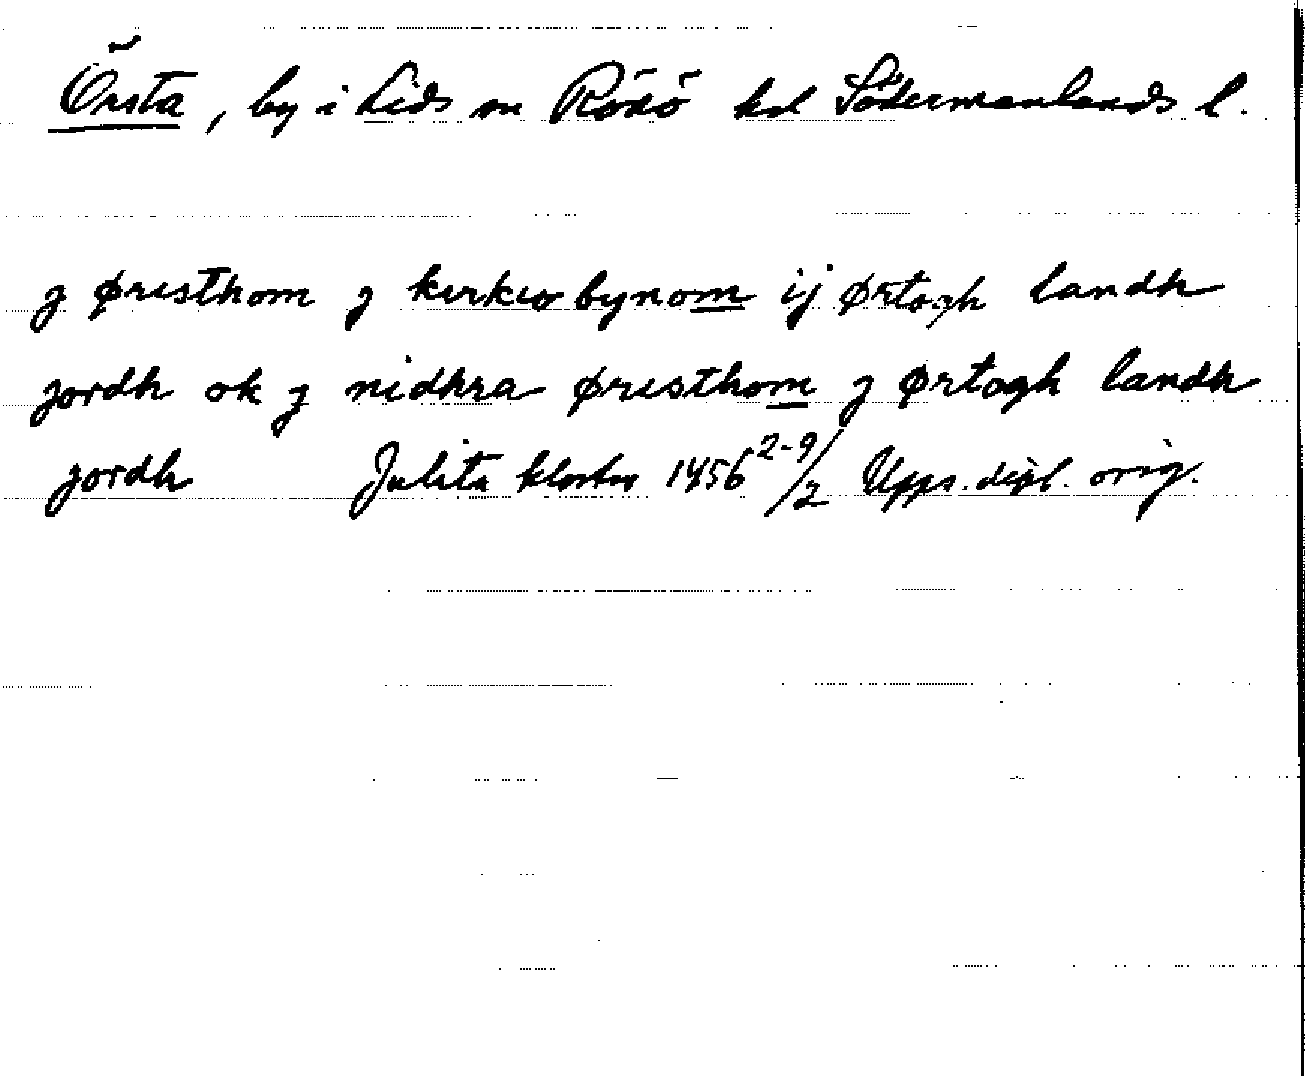 Örsta, by i Lids sn Rönö hd Södermanlands l.
j øresthom j kirkiobynom ij ørtogh landh
jordh ok j nidhra øresthom j ørtogh landh
jordh Julita kloster 1456 2-9/2 Upps. dipl. orig.